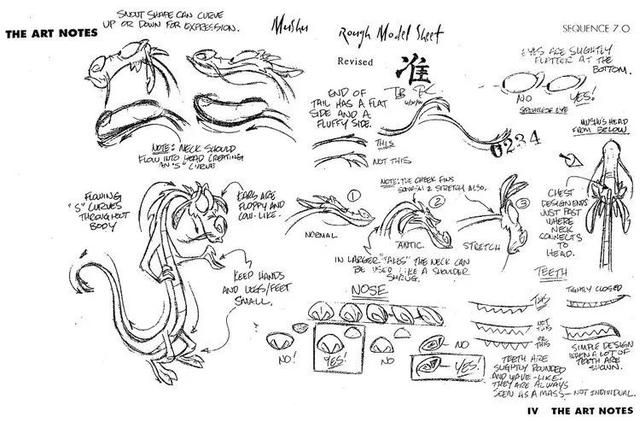 THE ART NOTES
SNOUT SHAPE CAN CURVE
UP OR DOWN FOR EXPRESSION.
Mushu
Rough Model Sheet
Revised
准
SEQUENCE 7.0
EYES ARE SLIGHTLY
FLATTER AT THE
BOTTOM.
NO
YES!
END OF
TAIL HAS A FLAT
SIDE AND A
FLUFFY SIDE.
THIS
NOT THIS
0234
MUSHU'S HEAD
FROM BELOW
NOTE: NECK SHOULD
FLOW INTO HEAD CREATING
AN "S" CURVE
CHEST
DESIGN ENDS
JUST PAST
WHERE
NECK
CONNECTS
TO
HEAD.
FLOWING
"S" CURVES
THROUGHOUT
BODY
EARS ARE
FLOPPY AND
COW-LIKE.
NOTE: THE CHEEK FINS
SQUASH & STRETCH ALSO.
1
NORMAL
2
ANTIC
3
STRETCH
IN LARGER "TAKES" THE NECK CAN
BE USED LIKE A SHOULDER
SHRUG.
KEEP HANDS
AND LEGS/FEET
SMALL.
NOSE
NO!
YES!
NO
NO
YES!
TEETH
THIS
NOT
THIS
OR
THIS
TIGHTLY CLOSED
SIMPLE DESIGN
WHEN A LOT OF
TEETH ARE
SHOWN.
TEETH ARE
SLIGHTLY ROUNDED
AND WAVE-LIKE.
THEY ARE ALWAYS
SEEN AS A MASS - NOT INDIVIDUAL.
IV THE ART NOTES